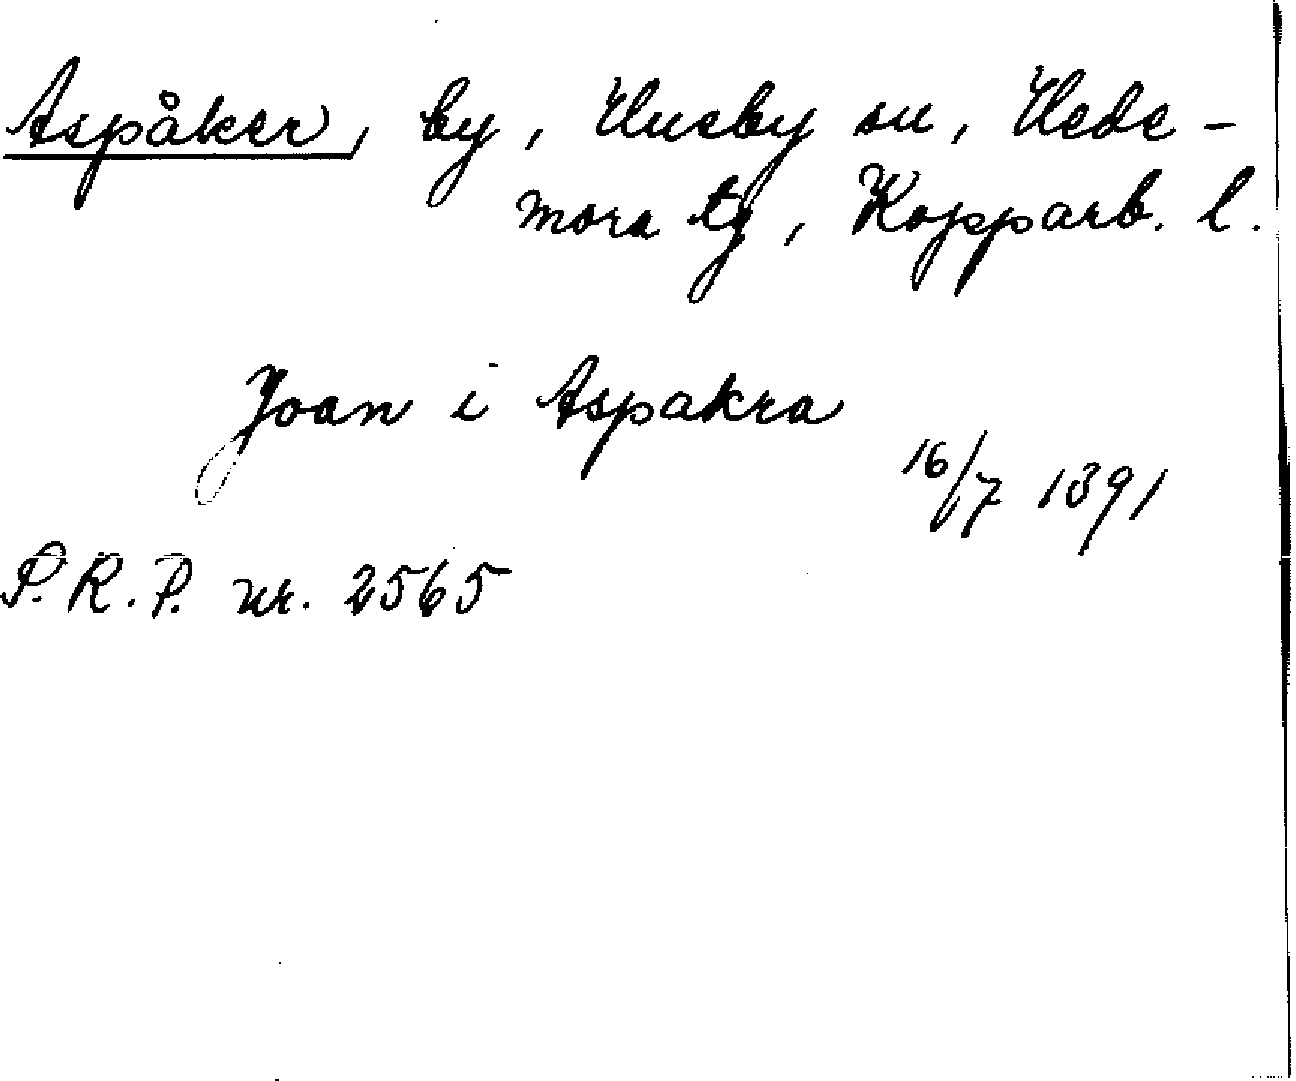 Aspåker, by, Husby sn, Hede-
mora tg, Kopparb. l.
Joan i Aspakra
16/7 1391
S.R.P. nr. 2565